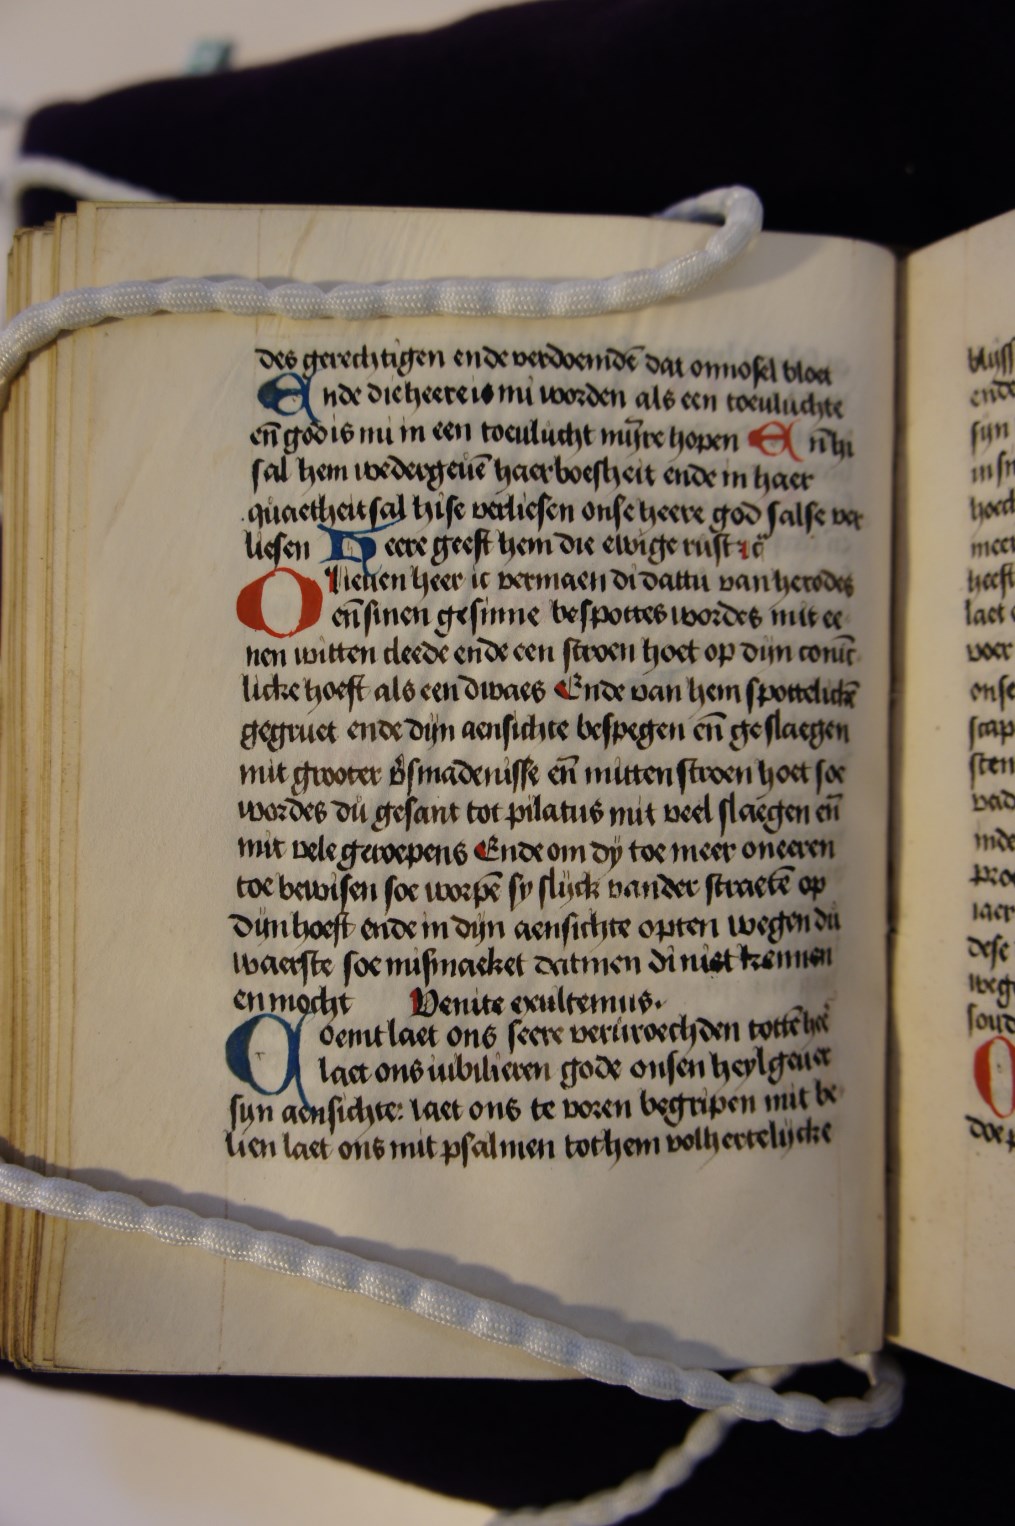 des gerechtigen ende verdoemdē dat onnosel bloet
Ende die heere is mi worden als een toeuluchte
en̄ god is mi in een toeulucht mijre hopen En̄ hi
sal hem wedergeuē haer boesheit ende in haer
quaetheit sal hise verliesen onse heere god salse ver
liesen Heere geeft hem die ewige rust ⁊c̄
O lieuen heer ic vermaen di dattu van herodes
en̄ sinen gesinne bespottes wordes mit ee
nen witten cleede ende een stroen hoet op dijn conic
licke hoeft als een dwaes Ende van hem spottelickē
gegruet ende dijn aensichte bespegen en̄ geslaegen
mit grooter v̄smadenisse en̄ mitten stroen hoet soe
wordes du gesant tot pilatus mit veel slaegen en̄
mit vele geroepens Ende om dy toe meer oneeren
toe bewisen soe worpē sy slijck vander straetē op
dijn hoeft ende in dijn aensichte opten wegen du
waerste soe mismaeket datmen di niet kennen
en mocht Venite exultemus.
Coemt laet ons seere veruroechden totte hee
laet ons iubilieren gode onsen heylgeuer
sijn aensichte: laet ons te voren begripen mit be
lien laet ons mit psalmen tot hem volhertelijcke
blijss
ende
sijn
in sn
hoed
meer
heeft
laet
voer
onse
scap
sten
vad
inde
pro
iaer
dese
weg
soud
O
doe